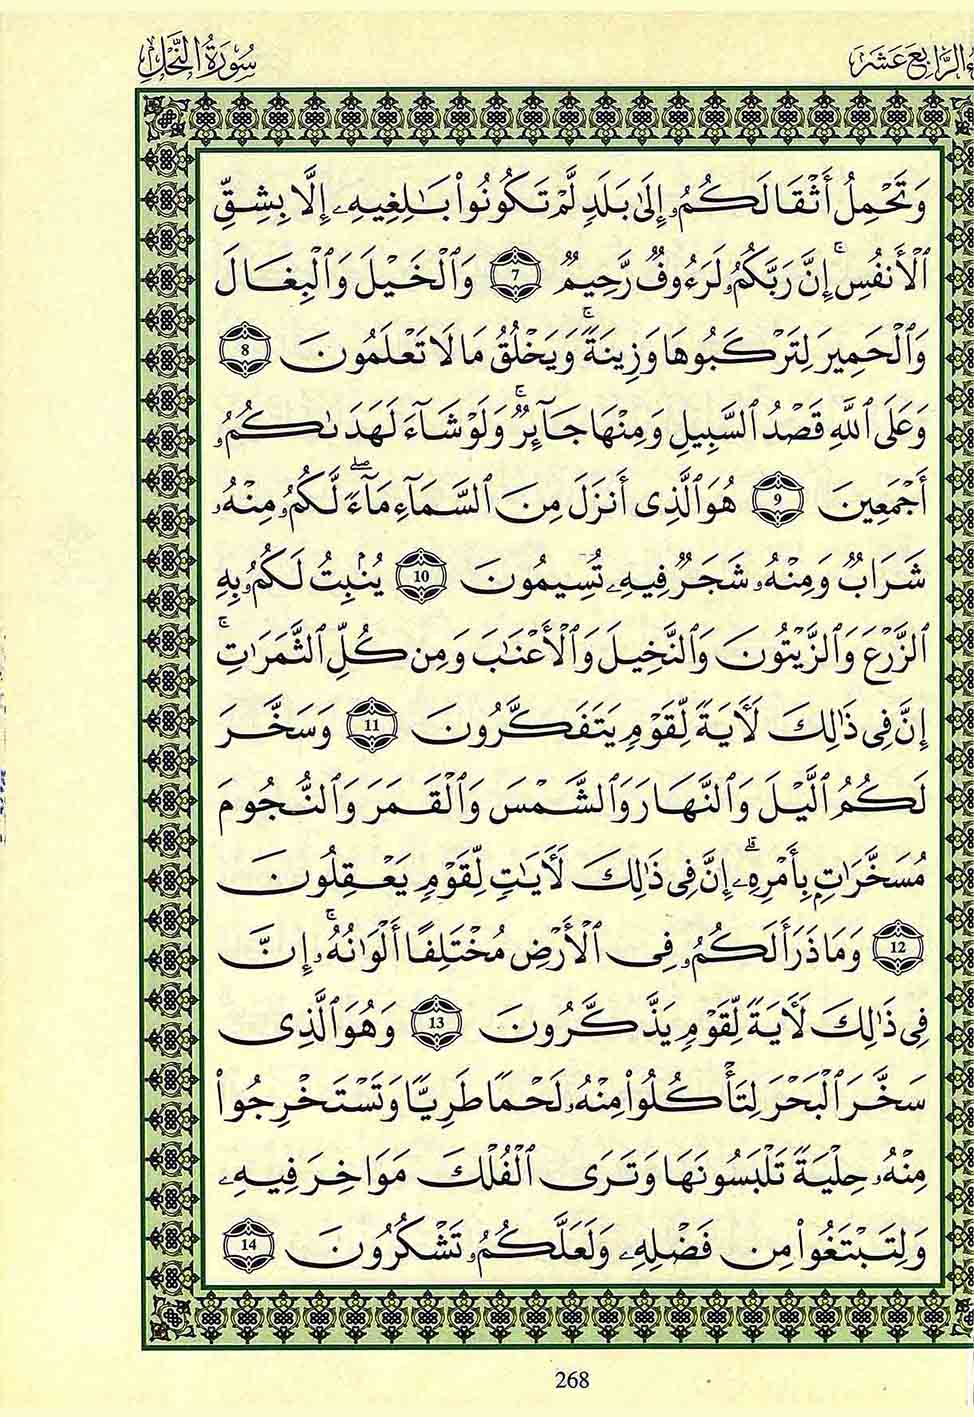 الرَّابِعَ عَشَرَ
سُورَةُ النَّحْلِ
وَتَحْمِلُ أَثْقَالَكُمُۥٓ إِلَىٰ بَلَدٍ لَّمْ تَكُونُوا۟ بَـٰلِغِيهِۦٓ إِلَّا بِشِقِّ
ٱلْأَنفُسِ ۚ إِنَّ رَبَّكُمُۥ لَرَءُوفٌ رَّحِيمٌ 7 وَٱلْخَيْلَ وَٱلْبِغَالَ
وَٱلْحَمِيرَ لِتَرْكَبُوهَا وَزِينَةً ۚ وَيَخْلُقُ مَا لَا تَعْلَمُونَ 8
وَعَلَى ٱللَّهِ قَصْدُ ٱلسَّبِيلِ وَمِنْهَا جَآئِرٌ ۚ وَلَوْ شَآءَ لَهَدَىٰكُمُۥٓ
أَجْمَعِينَ 9 هُوَ ٱلَّذِى أَنزَلَ مِنَ ٱلسَّمَآءِ مَآءً ۖ لَّكُمُۥ مِنْهُۥ
شَرَابٌ وَمِنْهُۥ شَجَرٌ فِيهِۦ تُسِيمُونَ 10 يُنۢبِتُ لَكُمُۥ بِهِ
ٱلزَّرْعَ وَٱلزَّيْتُونَ وَٱلنَّخِيلَ وَٱلْأَعْنَـٰبَ وَمِن كُلِّ ٱلثَّمَرَٰتِ ۚ
إِنَّ فِى ذَٰلِكَ لَـَٔايَةً لِّقَوْمٍ يَتَفَكَّرُونَ 11 وَسَخَّرَ
لَكُمُ ٱلَّيْلَ وَٱلنَّهَارَ وَٱلشَّمْسَ وَٱلْقَمَرَ وَٱلنُّجُومَ
مُسَخَّرَٰتٍۭ بِأَمْرِهِۦٓ ۗ إِنَّ فِى ذَٰلِكَ لَـَٔايَـٰتٍ لِّقَوْمٍ يَعْقِلُونَ
12 وَمَا ذَرَأَ لَكُمُۥ فِى ٱلْأَرْضِ مُخْتَلِفًا أَلْوَٰنُهُۥٓ ۚ إِنَّ
فِى ذَٰلِكَ لَـَٔايَةً لِّقَوْمٍ يَذَّكَّرُونَ 13 وَهُوَ ٱلَّذِى
سَخَّرَ ٱلْبَحْرَ لِتَأْكُلُوا۟ مِنْهُۥ لَحْمًا طَرِيًّا وَتَسْتَخْرِجُوا۟
مِنْهُۥ حِلْيَةً تَلْبَسُونَهَا وَتَرَى ٱلْفُلْكَ مَوَاخِرَ فِيهِۦ
وَلِتَبْتَغُوا۟ مِن فَضْلِهِۦ وَلَعَلَّكُمُۥ تَشْكُرُونَ 14
268